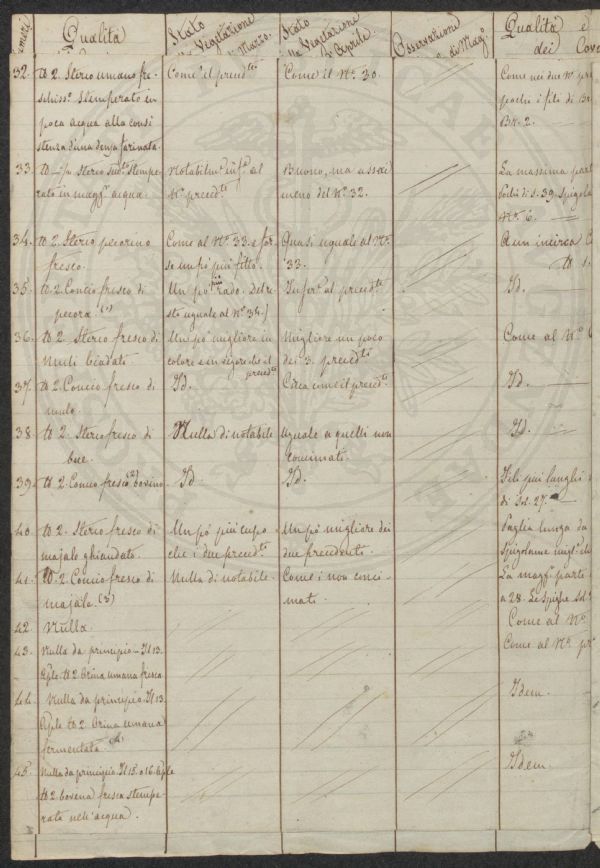 Numeri
Qualità
Stato della Vegetazione di Marzo.
Stato della Vegetazione d'Aprile.
Osservazione di Magº
Qualità e
dei Cov
32. ℔ 2. Sterco umano fre-
schissº stemperato in
poca acqua alla consi
stenza d'una densa farinata.
Come il precedte
Come il Nº 30.
Come nei due Nº pre
pochi i fili di Br
Br. 2.
33. Sterco sudtº stempe-
rato in maggr acqua.
Notabilmte infre al
Nº precedte
Buono, ma assai
meno del Nº 32.
La massima part
bochi di s. 39. Spigola
Nº 6.
34. ℔ 2. Sterco pecorino
fresco.
Come al Nº 33. e for
se un pò più fitto.
Quasi uguale al Nº
33.
35. ℔ 2. Concio fresco di
pecora. (1)
Un pò più rado. Del re-
sto uguale al Nº 34.
Inferre al precedte
Id.
36. ℔ 2. Sterco fresco di
Muli biadati.
Un pò migliore in
colore e in vigore che il precedte
Migliore un poco
dei 3. precedti
Come al Nº
37. ℔ 2. Concio fresco di
mulo.
Id.
Circa come il precedte
Id.
38. ℔ 2. Sterco fresco di
bue.
Nulla di notabile
Uguale a quelli non
concimati.
Id.
39. ℔ 2. Concio fresco (2) bovino.
Id.
Id.
Fili più lunghi
di Sd. 27.
40. ℔ 2. Sterco fresco di
majale ghiandato.
Un pò più cupo
che i due precedti
Un pò migliore dei
due precedenti.
Paglia lunga da
Spigolame miglre
41. ℔ 2. Concio fresco di
majale. (3)
Nulla di notabile.
Come i non conci-
mati.
La maggr parte
a 28. Le spighe Sd.
42. Nulla.
Come al Nº
43. Nulla da principio. Il 13.
Aple ℔ 2 Orina umana fresca
Come al Nº pre
44. Nulla da principio. Il 13.
Aple ℔ 2 Orina umana
fermentata (4)
Idem.
45. Nulla da principio. Il 15. o 16. Aple
℔ 2 bovina fresca stempe-
rata nell'acqua.
Idem.